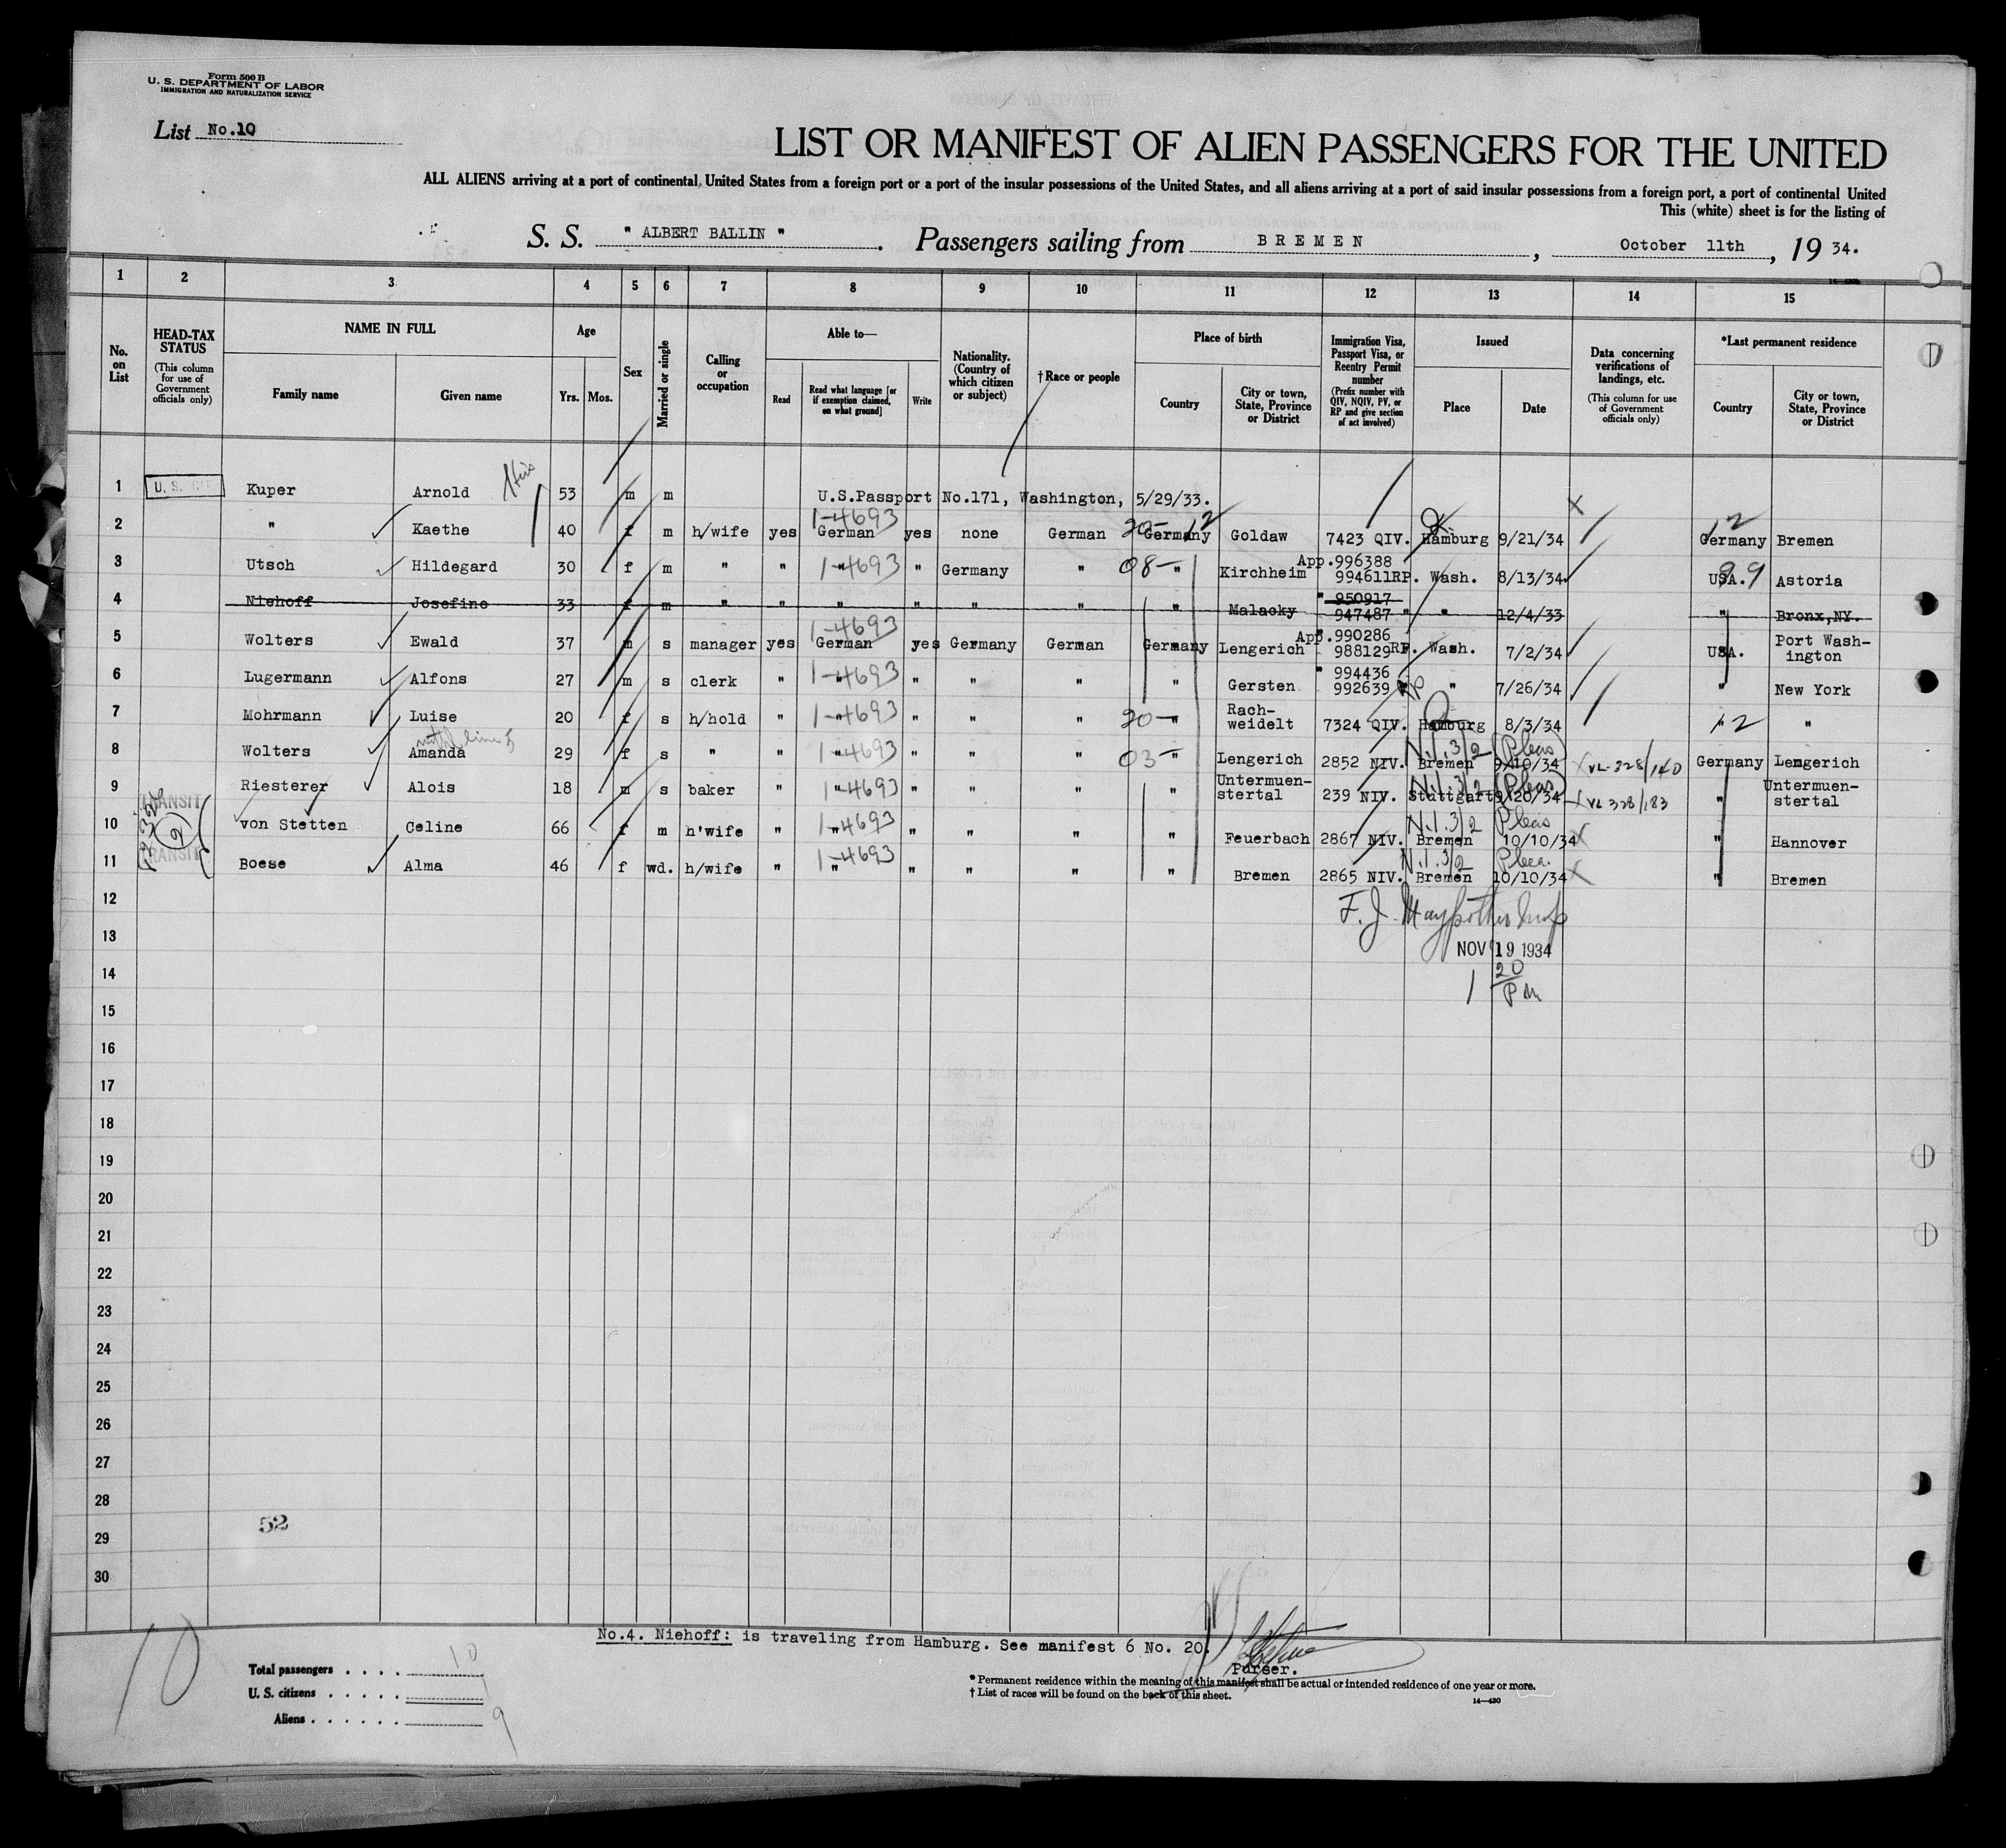 Form 500 B
U. S. DEPARTMENT OF LABOR
IMMIGRATION AND NATURALIZATION SERVICE
List No.10
LIST OR MANIFEST OF ALIEN PASSENGERS FOR THE UNITED
ALL ALIENS arriving at a port of continental United States from a foreign port or a port of the insular possessions of the United States, and all aliens arriving at a port of said insular possessions from a foreign port, a port of continental United
This (white) sheet is for the listing of
S. S. " ALBERT BALLIN ". Passengers sailing from BREMEN, October 11th, 19 34.
1 2 3 4 5 6 7 8 9 10 11 12 13 14 15
No. on List
HEAD-TAX STATUS (This column for use of Government officials only)
NAME IN FULL
Family name
Given name
Age
Yrs. Mos.
Sex
Married or single
Calling or occupation
Able to—
Read
Read what language [or if exemption claimed, on what ground]
Write
Nationality. (Country of which citizen or subject)
† Race or people
Place of birth
Country
City or town, State, Province or District
Immigration Visa, Passport Visa, or Reentry Permit number (Prefix number with QIV, NQIV, PV, or RP and give section of act involved)
Issued
Place
Date
Data concerning verifications of landings, etc. (This column for use of Government officials only)
*Last permanent residence
Country
City or town, State, Province or District
1 U. S. CIT Kuper Arnold 53 m m U.S.Passport No.171, Washington, 5/29/33. x
2 " Kaethe 40 f m h/wife yes German 1-4693 yes none German 20- Germany 12 Goldaw 7423 QIV. Hamburg 9/21/34 12 Germany Bremen
3 Utsch Hildegard 30 f m " " " 1-4693 " Germany " 08- " Kirchheim App.996388 994611RP. Wash. 8/13/34 USA. 99 Astoria
4 Niehoff Josefine 33 f m " " " " " " " Malacky " 950917 947487 " " 12/4/33 " Bronx,NY.
5 Wolters Ewald 37 m s manager yes German 1-4693 yes Germany German Germany Lengerich App.990286 988129RP. Wash. 7/2/34 USA. Port Washington
6 Lugermann Alfons 27 m s clerk " " 1-4693 " " " " Gersten " 994436 992639 RP " 7/26/34 " New York
7 Mohrmann Luise 20 f s h/hold " " 1-4693 " " " 20- " Rach-weidelt 7324 QIV. Hamburg 8/3/34 " 12 "
8 Wolters Amanda with line 5 29 f s " " " 1-4693 " " " 03- " Lengerich 2852 NIV. Bremen 9/10/34 N.I.3/2 (Pleas) x VL-328/140 Germany Lengerich
9 Riesterer Alois 18 m s baker " " 1-4693 " " " " Untermuen-stertal 239 NIV. Stuttgart 9/20/34 N.I.3/2 (Pleas) x VL 328/183 " Untermuen-stertal
10 TRANSIT von Stetten Celine 66 f m h'wife " " 1-4693 " " " " Feuerbach 2867 NIV. Bremen 10/10/34 N.I.3/2 Pleas x " Hannover
11 TRANSIT Boese Alma 46 f wd. h/wife " " 1-4693 " " " " Bremen 2865 NIV. Bremen 10/10/34 N.I.3/2 x " Bremen
12
13 NOV 19 1934
14 1 20 PM
15
16
17
18
19
20
21
22
23
24
25
26
27
28
52
29
30
No.4. Niehoff: is traveling from Hamburg. See manifest 6 No. 20.
Purser.
10
Total passengers . . . . 10
U. S. citizens . . . . . 1
Aliens . . . . . . 9
* Permanent residence within the meaning of this manifest shall be actual or intended residence of one year or more.
† List of races will be found on the back of this sheet.
14—430